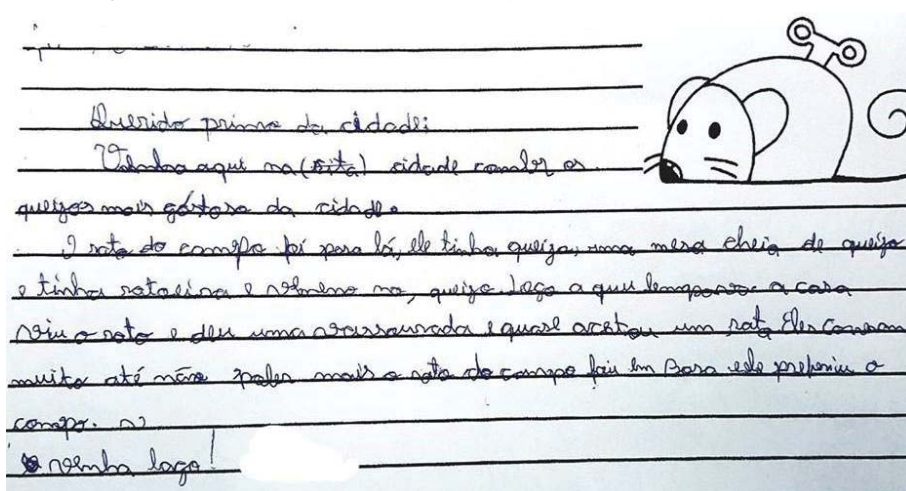 Querido primo da cidade:
Venha aqui na (sita) cidade comer os
queijos mais gostoso da cidade.
O rato do campo foi para lá, ele tinha queijo, uma mesa cheia de queijo
e tinha ratoeira e veneno no, queijo. Logo a que limpava a casa
viu o rato e deu uma vassourada e quase acetou um rato Eles comeram
muito até não poder mais o rato do campo foi em bora ele preferiu o
campo.
venha logo!